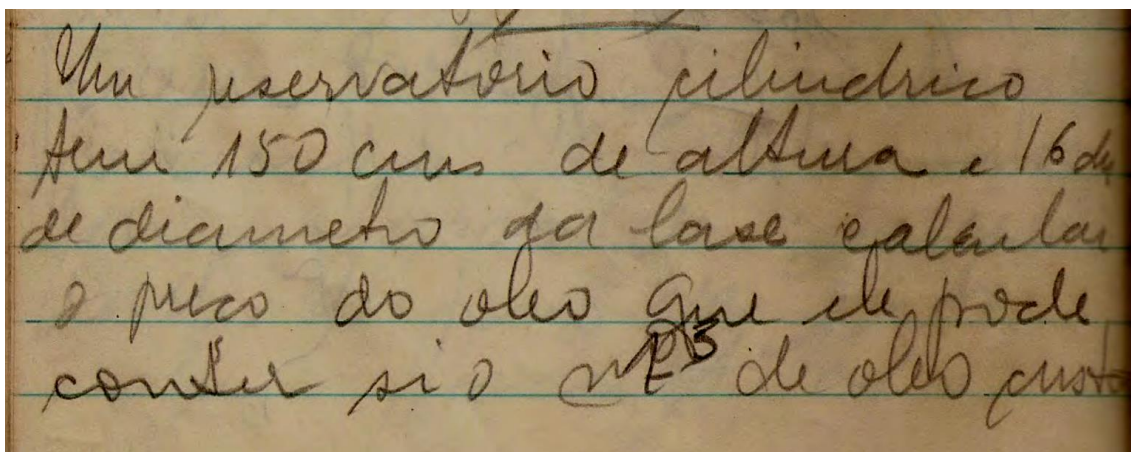 Um reservatorio cilindrico
tem 150 cms de altura e 16 dm
de diametro da base calcular
o preco do oleo que ele pode
conter si o de oleo custa